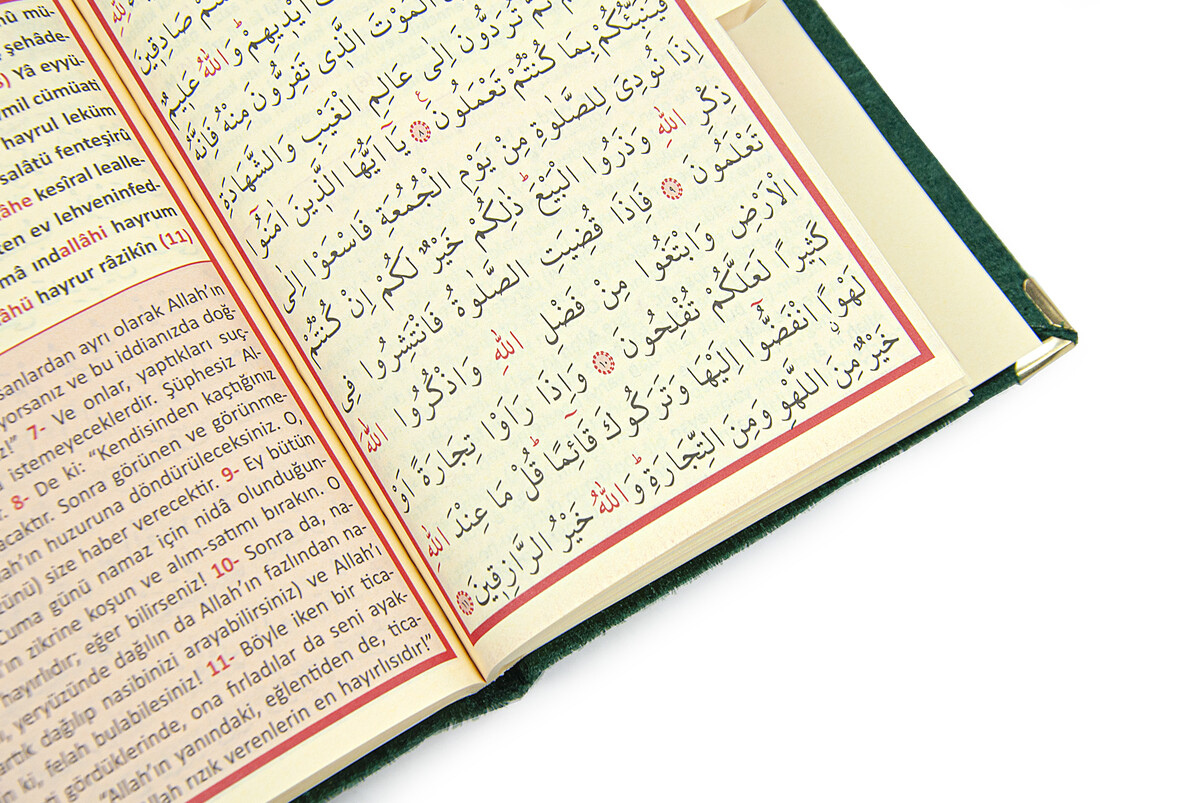 şehâde-
Yâ eyyü-
mil cümüati
hayrul leküm
salâtü fenteşirû
kesîral lealle-
ten ev lehveninfed-
mâ ındallâhi hayrum
hayrur râzikîn (11)
sanlardan ayrı olarak Allah’ın
yorsanız ve bu iddianızda doğ-
7- Ve onlar, yaptıkları suç-
istemeyeceklerdir. Şüphesiz Al-
8- De ki: “Kendisinden kaçtığınız
acaktır. Sonra görünen ve görünme-
lah’ın huzuruna döndürüleceksiniz. O,
size haber verecektir. 9- Ey bütün
Cuma günü namaz için nidâ olunduğun-
’ın zikrine koşun ve alım-satımı bırakın. O
hayırlıdır; eğer bilirseniz! 10- Sonra da, na-
yeryüzünde dağılın da Allah’ın fazlından na-
artık dağılıp nasibinizi arayabilirsiniz) ve Allah’ı
ki, felah bulabilesiniz! 11- Böyle iken bir tica-
gördüklerinde, ona fırladılar da seni ayak-
“Allah’ın yanındaki, eğlentiden de, tica-
rızık verenlerin en hayırlısıdır!”
صَادِقِينَ
اَيْدِيهِمْ وَاللّٰهُ عَلِيمٌ
الْمَوْتَ الَّذِى تَفِرُّونَ مِنْهُ فَاِنَّهُ
تُرَدُّونَ اِلٰى عَالِمِ الْغَيْبِ وَالشَّهَادَةِ
فَيُنَبِّئُكُمْ بِمَا كُنْتُمْ تَعْمَلُونَ ﴿٨﴾ يَٓا اَيُّهَا الَّذِينَ اٰمَنُٓوا
اِذَا نُودِىَ لِلصَّلٰوةِ مِنْ يَوْمِ الْجُمُعَةِ فَاسْعَوْا اِلٰى
ذِكْرِ اللّٰهِ وَذَرُوا الْبَيْعَ ذٰلِكُمْ خَيْرٌ لَكُمْ اِنْ كُنْتُمْ
تَعْلَمُونَ ﴿٩﴾ فَاِذَا قُضِيَتِ الصَّلٰوةُ فَانْتَشِرُوا فِى
الْاَرْضِ وَابْتَغُوا مِنْ فَضْلِ اللّٰهِ وَاذْكُرُوا اللّٰهَ
كَثِيرًا لَعَلَّكُمْ تُفْلِحُونَ ﴿١٠﴾ وَاِذَا رَاَوْا تِجَارَةً اَوْ
لَهْوًا انْفَضُّٓوا اِلَيْهَا وَتَرَكُوكَ قَٓائِمًا قُلْ مَا عِنْدَ اللّٰهِ
خَيْرٌ مِنَ اللَّهْوِ وَمِنَ التِّجَارَةِ وَاللّٰهُ خَيْرُ الرَّازِقِينَ ﴿١١﴾